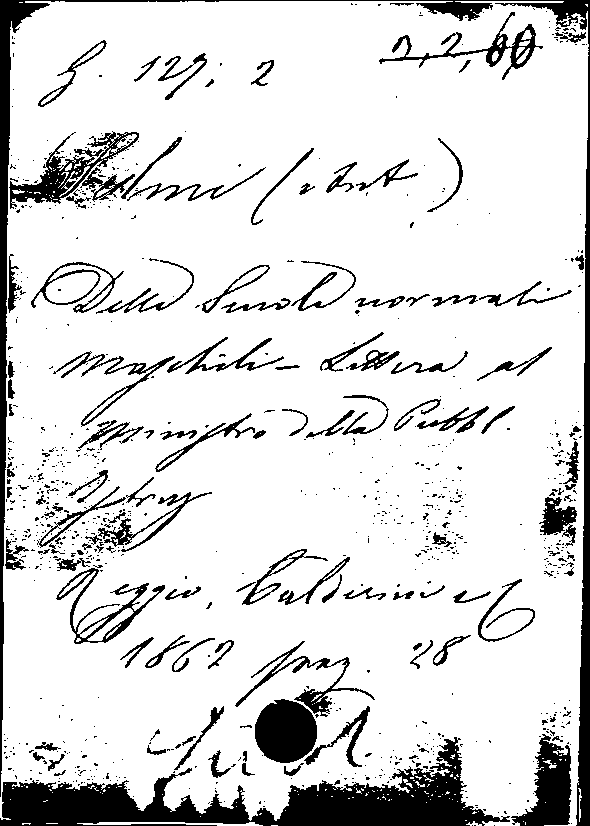 G. 127; 2 2,2,60
(
Delle Scuole normali
Maschili - Lettera al
Ministro della Pubbl.
Istruz
Reggio, Calderini e C
1862 pag. 28